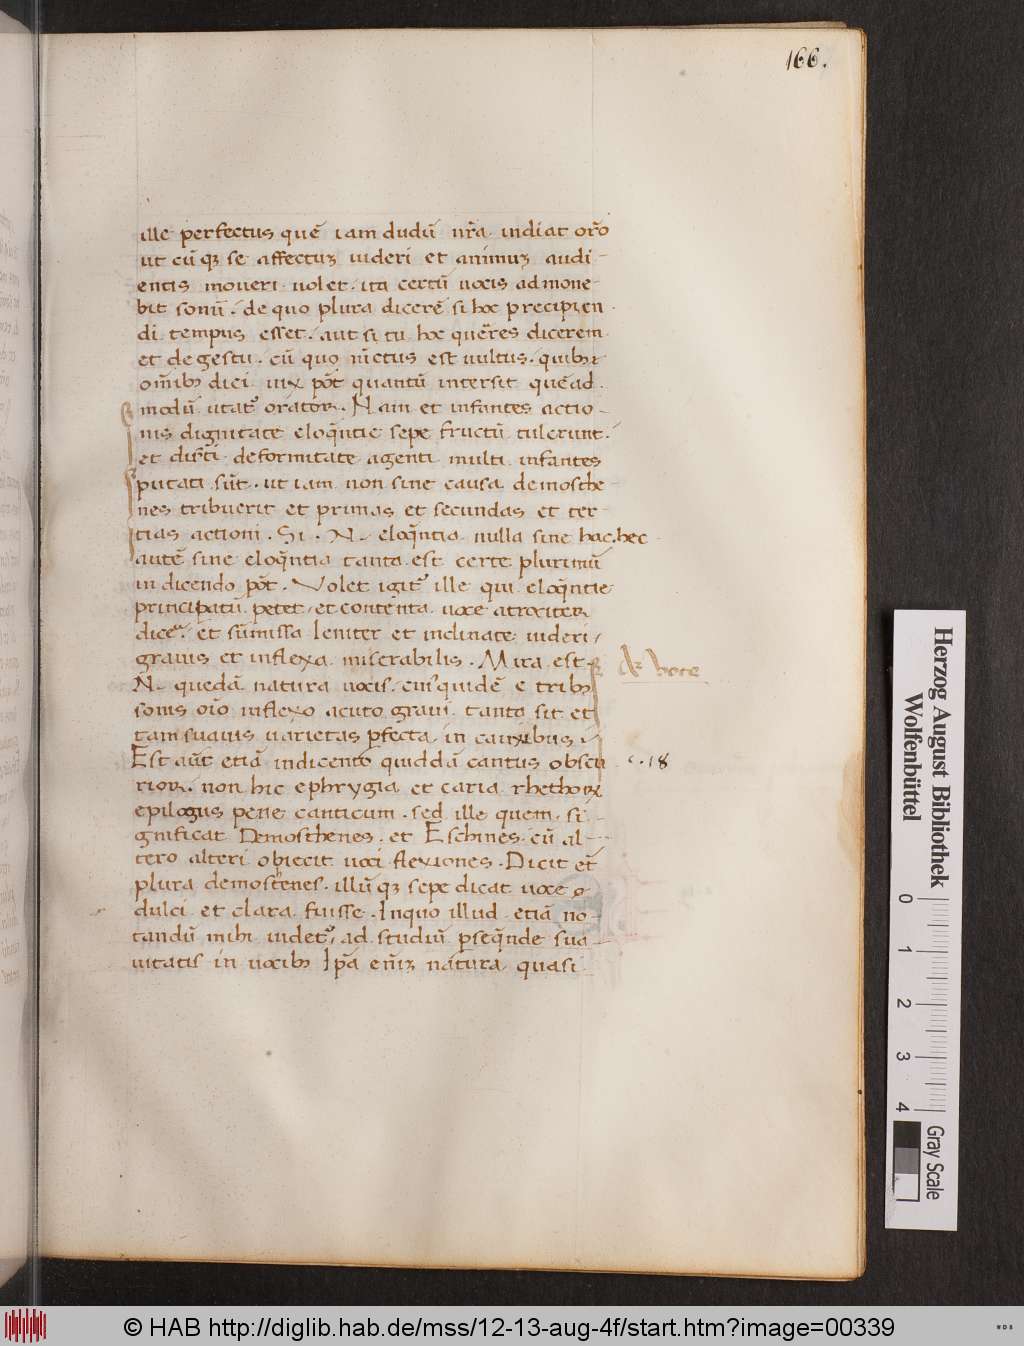 166.
ille perfectus quē iam dudū nr̄a indicat or̄o
ut cūqȝ se affectuȝ uideri et animuȝ audi-
entis moueri uolet. ita certū uocis admone-
bit sonū. de quo plura dicerē si hoc precipien
di tempus esset. aut si tu hoc quer̄es dicerem
et de gestu. cū quo iūctus est uultus. quibȝ
om̄ibȝ dici uix pōt quantū intersit quēad
modū utat² orator. Nam et infantes actio-
nis dignitate eloq̄ntie sepe fructū tulerunt.
et diserti deformitate agenti multi infantes
putati sūt. ut iam non sine causa demosthe-
nes tribuerit et primas et secundas et ter-
tias actioni. Si .N. eloq̄ntia nulla sine hac. hec
autē sine eloq̄ntia tanta est certe plurimū
in dicendo pōt. Volet igit² ille qui eloq̄ntie
principatū petet. et contenta uoce atrociter
dice². et sūmissa leniter et inclinate uideri
grauis et inflexa miserabilis. Mira est
.N. quedā natura uocis. cuiꝰ quidē e tribȝ
sonis oīo inflexo acuto graui tanta sit et
tam suauis uarietas ꝑfecta in cantibus
Est aūt etiā indicento quiddā cantus obscu
rior. non hic ephrygia et caria rhethorȝ
epilogus pene canticum. sed ille quem si-
gnificat Demosthenes. et Eschines. cū al-
tero alteri obiecit uoci flexiones. Dicit et̄
plura demostenes. illūqȝ sepe dicat uoce
dulci et clara fuisse. Inquo illud etiā no-
tandū mihi uidet² ad studiū ꝑseq̄nde sua-
uitatis in uocibȝ Ip̄a enīȝ natura quasi
de voce
c. 18
Herzog August Bibliothek
Wolfenbüttel
0 1 2 3 4
Gray Scale
© HAB http://diglib.hab.de/mss/12-13-aug-4f/start.htm?image=00339